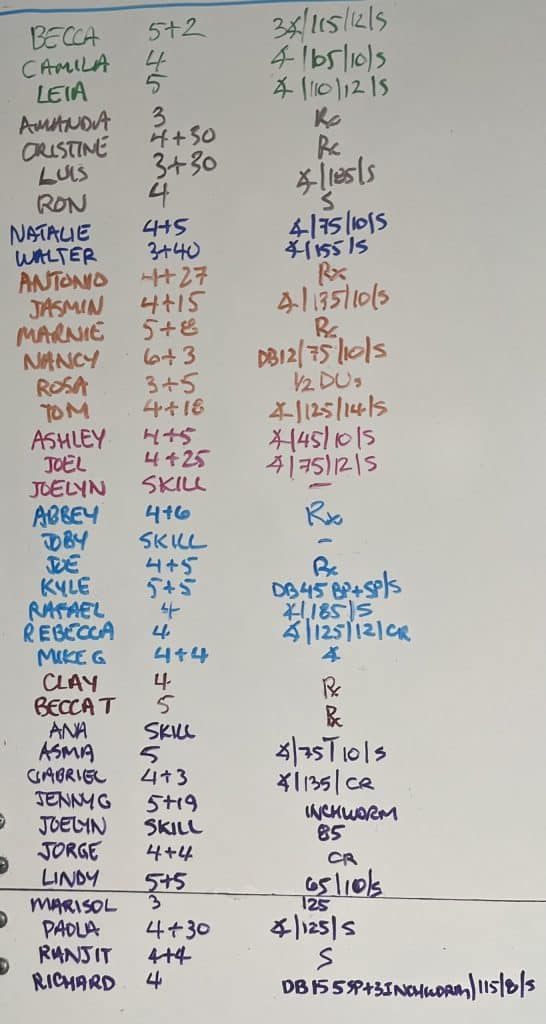 BECCA 5+2 3∡/115/12/S
CAMILA 4 ∡/65/10/S
LEIA 5 ∡/110/12/S
AMANDA 3 Rx
CRISTINE 4+30 Rx
LUIS 3+30 ∡/185/S
RON 4 S
NATALIE 4+5 ∡/75/10/S
WALTER 3+40 ∡/155/S
ANTONIO 4+27 Rx
JASMIN 4+15 ∡/135/10/S
MARNIE 5+8 Rx
NANCY 6+3 DB12/75/10/S
ROSA 3+5 1/2 DUs
TOM 4+18 ∡/125/14/S
ASHLEY 4+5 ∡/45/10/S
JOEL 4+25 ∡/75/12/S
JOELYN SKILL -
ABBEY 4+6 Rx
JOBY SKILL -
JOE 4+5 Rx
KYLE 5+5 DB45 BP+SP/S
RAFAEL 4 ∡/185/S
REBECCA 4 ∡/125/12/CR
MIKE G 4+4 ∡
CLAY 4 Rx
BECCA T 5 Rx
ANA SKILL
ASMA 5 ∡/75/10/S
GABRIEL 4+3 ∡/135/CR
JENNY G 5+19 INCHWORM
JOELYN SKILL 85
JORGE 4+4 CR
LINDY 5+5 65/10/S
MARISOL 3 125
PAOLA 4+30 ∡/125/S
RANJIT 4+4 S
RICHARD 4 DB15 5SP+3INCHWORM/115/8/S